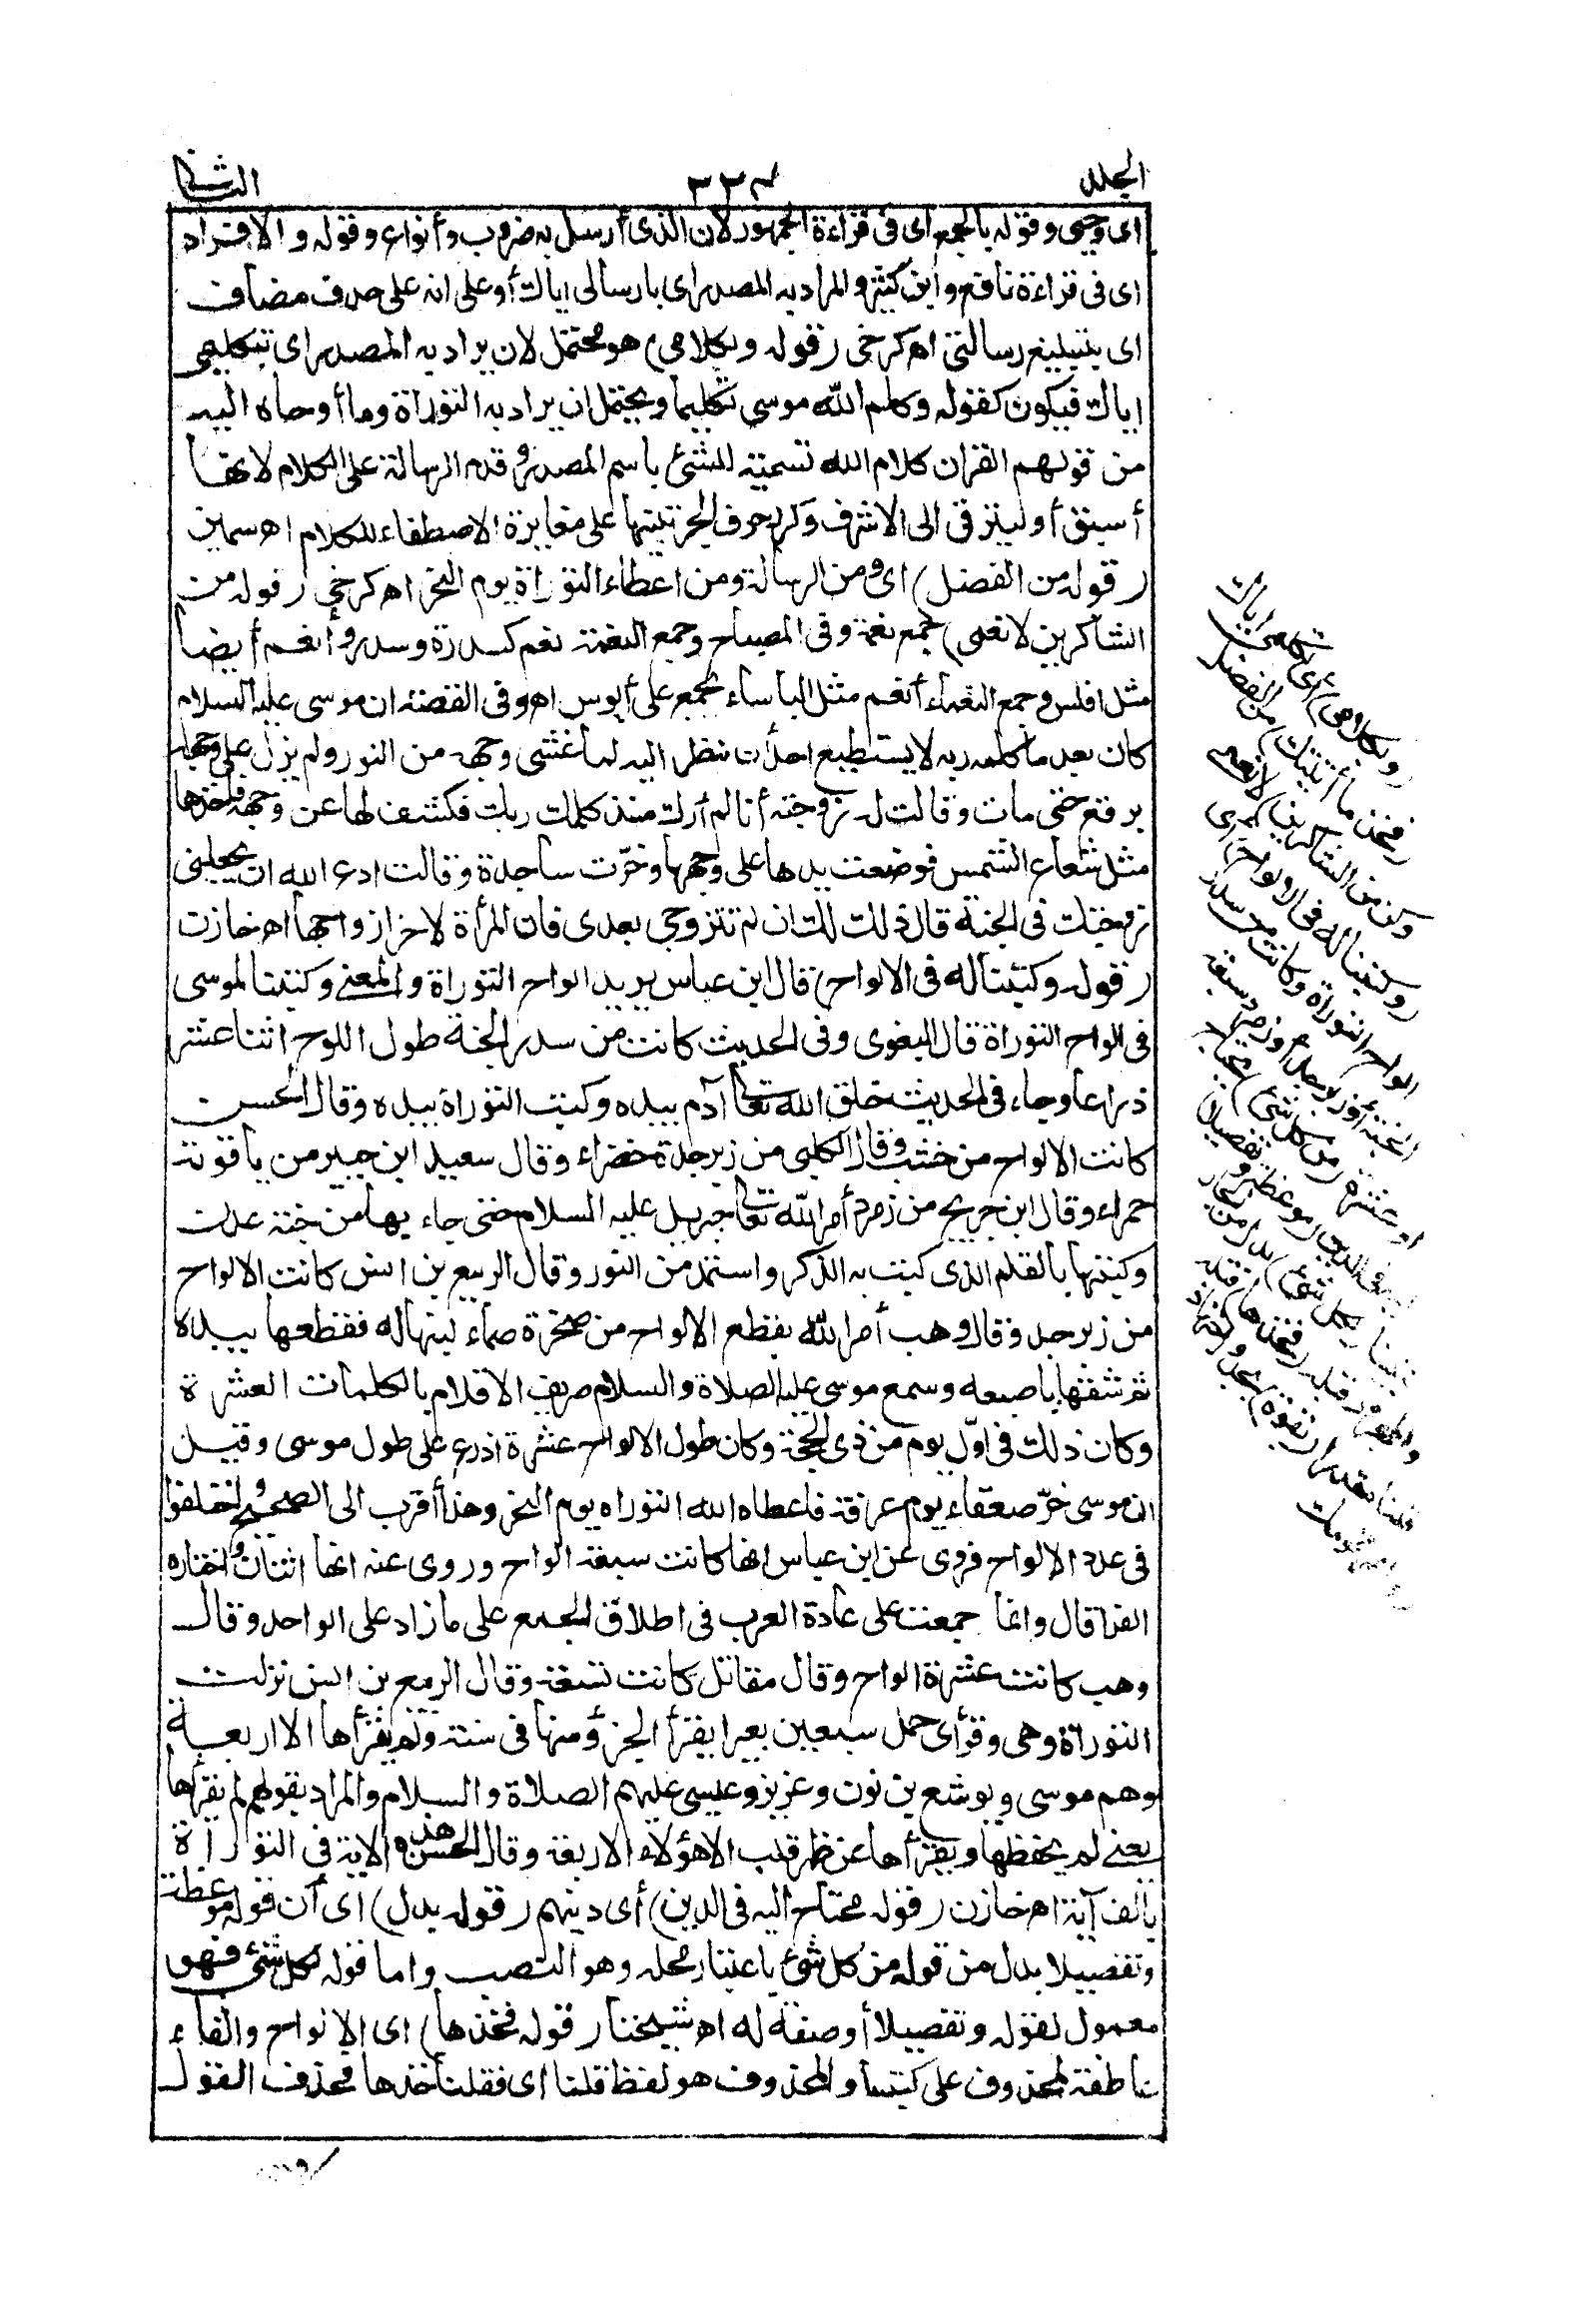 الجلد ٣٣٤ الثانى
اى وحيى وقوله بالجمع اى فى قراءة الجمهور لان الذى أرسل به ضروب وأنواع وقوله والافراد
اى فى قراءة نافع وابن كثير والمراد به المصدر اى بارسالى اياك أو على انه على حذف مضاف
اى بتبليغ رسالتى اه كرخى (قوله وبكلامى) هو محتمل لان يراد به المصدر اى بتكليمى
اياك فيكون كقوله وكلم الله موسى تكليما ويحتمل ان يراد به التوراة وما أوحاه اليه
من قولهم القران كلام الله تسمية للشئ باسم المصدر وقدم الرسالة على الكلام لانها
أسبق أو ليترقى الى الاشرف وكرر حرف الجر تنبيها على مغايرة الاصطفاء للكلام اه سمين
(قوله من الفضل) اى ومن الرسالة ومن اعطاء التوراة يوم النحر اه كرخى (قوله من
الشاكرين لانعمى) جمع نعمة وفى المصباح وجمع النعمة نعم كسدرة وسدر وأنعم أيضا
مثل افلس وجمع النعماء أنعم مثل البأساء تجمع على أبوس اه وفى القصة ان موسى عليه السلام
كان بعد ما كلمه ربه لا يستطيع احد أن ينظر اليه لما غشى وجهه من النور ولم يزل على وجهه
برقع حتى مات وقالت له زوجته أنا لم أرك منذ كلمك ربك فكشف لها عن وجهه فاخذها
مثل شعاع الشمس فوضعت يدها على وجهها وخرّت ساجدة وقالت ادع الله ان يجعلنى
زوجتك فى الجنة قال ذلك لك ان لم تتزوجى بعدى فان المرأة لاخر ازواجها اه خازن
(قوله وكتبنا له فى الالواح) قال ابن عباس يريد الواح التوراة والمعنى وكتبنا لموسى
فى الواح التوراة قال البغوى وفى الحديث كانت من سدر الجنة طول اللوح اثنا عشر
ذراعا وجاء فى الحديث خلق الله تعالى آدم بيده وكتب التوراة بيده وقال الحسن
كانت الالواح من خشب وقال الكلبى من زبرجدة خضراء وقال سعيد ابن جبير من ياقوتة
حمراء وقال ابن جريج من زمرد أمر الله تعالى جبريل عليه السلام حتى جاء بها من جنة عدن
وكتبها بالقلم الذى كتب به الذكر واستمد من النور وقال الربيع بن انس كانت الالواح
من زبرجد وقال وهب أمر الله بقطع الالواح من صخرة صماء لينها له فقطعها بيده
ثم شققها باصبعه وسمع موسى عليه الصلاة والسلام صريف الاقلام بالكلمات العشرة
وكان ذلك فى اوّل يوم من ذى الحجة وكان طول الالواح عشرة اذرع على طول موسى وقيل
ان موسى خرّ صعقاء يوم عرفة فاعطاه الله التوراه يوم النحر وهذا أقرب الى الصحيح واختلفوا
فى عدد الالواح فروى عن ابن عباس انها كانت سبعة الواح وروى عنه انها اثنان واختاره
الفرا قال وانما جمعت على عادة العرب فى اطلاق الجمع على ما زاد على الواحد وقال
وهب كانت عشرة الواح وقال مقاتل كانت تسعة وقال الربيع بن انس نزلت
التوراة وهى وقر أى حمل سبعين بعيرا يقرأ الجزؤ منها فى سنة ولم يقرأها الا اربعة
وهم موسى ويوشع بن نون وعزيز وعيسى عليهم الصلاة والسلام والمراد بقولهم لم يقرأها
يعنى لم يحفظها ويقرأها عن ظهر قلب الا هؤلاء الاربعة وقال الحسن هذه الاية فى التوراة
بالف آية اه خازن (قوله محتاج اليه فى الدين) أى دينهم (قوله بدل) اى أن قوله موعظة
وتفصيلا بدل من قوله من كل شئ باعتبار محله وهو النصب واما قوله لكل شئ فهو
معمول لقوله وتفصيلا أو صفة له اه شيخنا (قوله فخذها) اى الالواح والفاء
عاطفة لمحذوف على كتبنا والمحذوف هو لفظ قلنا اى فقلنا خذها فحذف القول
وبكلامى) أى تكليمى اياك
(فخذ ما آتيتك) من الفضل
وكن من الشاكرين) لانعمى
(وكتبنا له فى الالواح) اى
الواح التوراة وكانت من سدر
الجنة أو زبرجد أو زمرد سبعة
او عشرة (من كل شئ) يحتاج
اليه فى الدين (موعظة وتفصيلا)
تبيينا (لكل شئ) بدل من الجار
والمجرور قبله (فخذها) قبله
قلنا مقدرا (بقوة) بجد واجتهاد